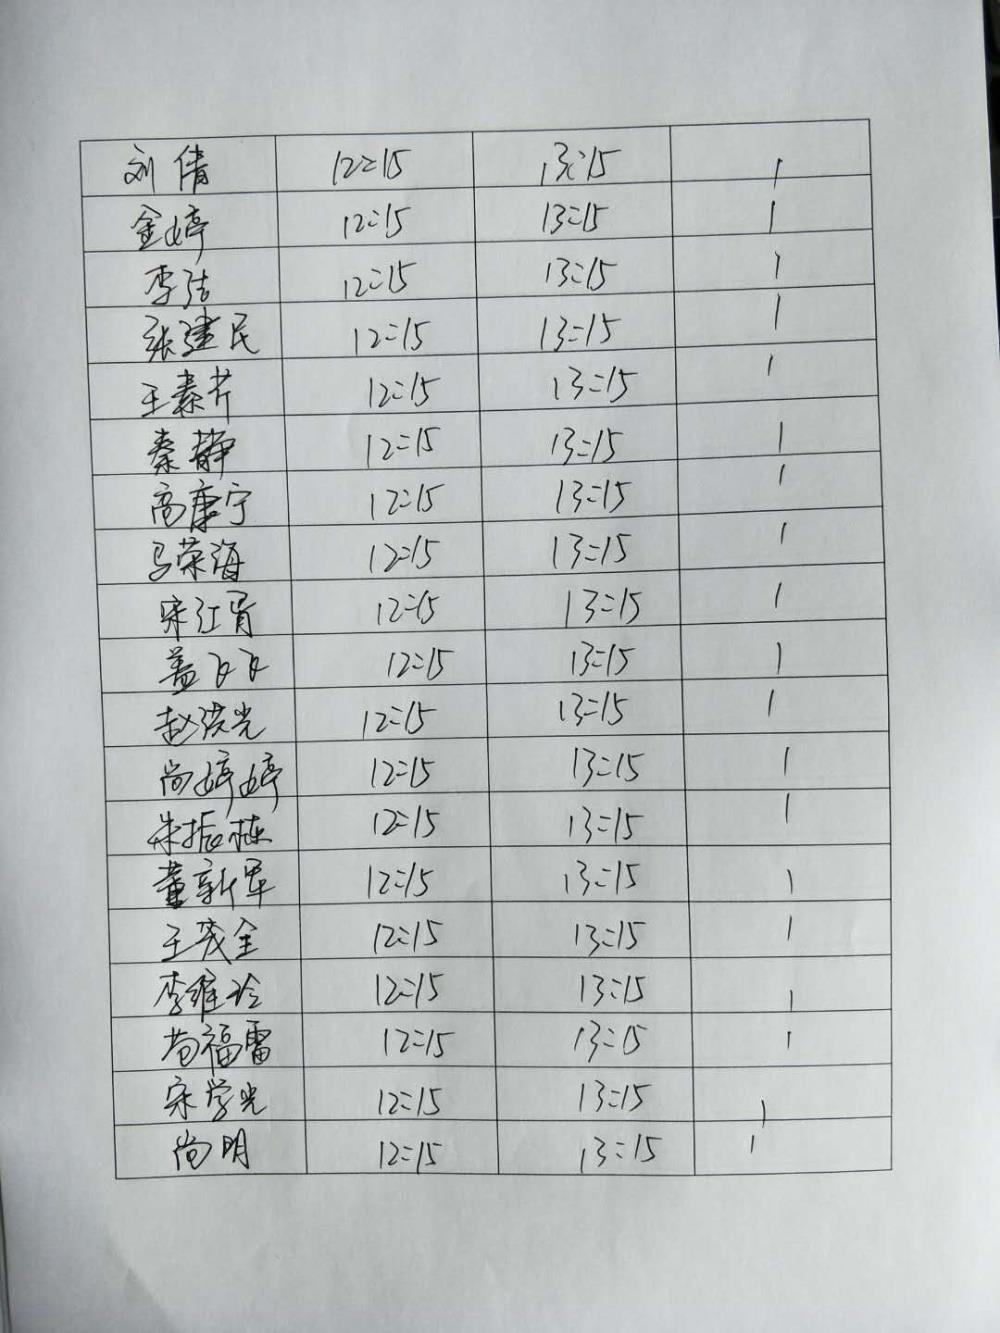 刘倩 12:15 13:15 1
金婷 12:15 13:15 1
李洁 12:15 13:15 1
张建民 12:15 13:15 1
王素芹 12:15 13:15 1
秦静 12:15 13:15 1
高康宁 12:15 13:15 1
马荣海 12:15 13:15 1
宋江胥 12:15 13:15 1
盖飞飞 12:15 13:15 1
赵洪光 12:15 13:15 1
尚婷婷 12:15 13:15 1
朱振栋 12:15 13:15 1
董新军 12:15 13:15 1
王茂全 12:15 13:15 1
李维玲 12:15 13:15 1
苟福雷 12:15 13:15 1
宋学光 12:15 13:15 1
尚明 12:15 13:15 1